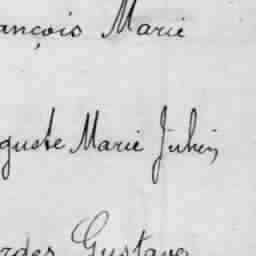 ançois Marie
guste Marie Julien
rges Gustave